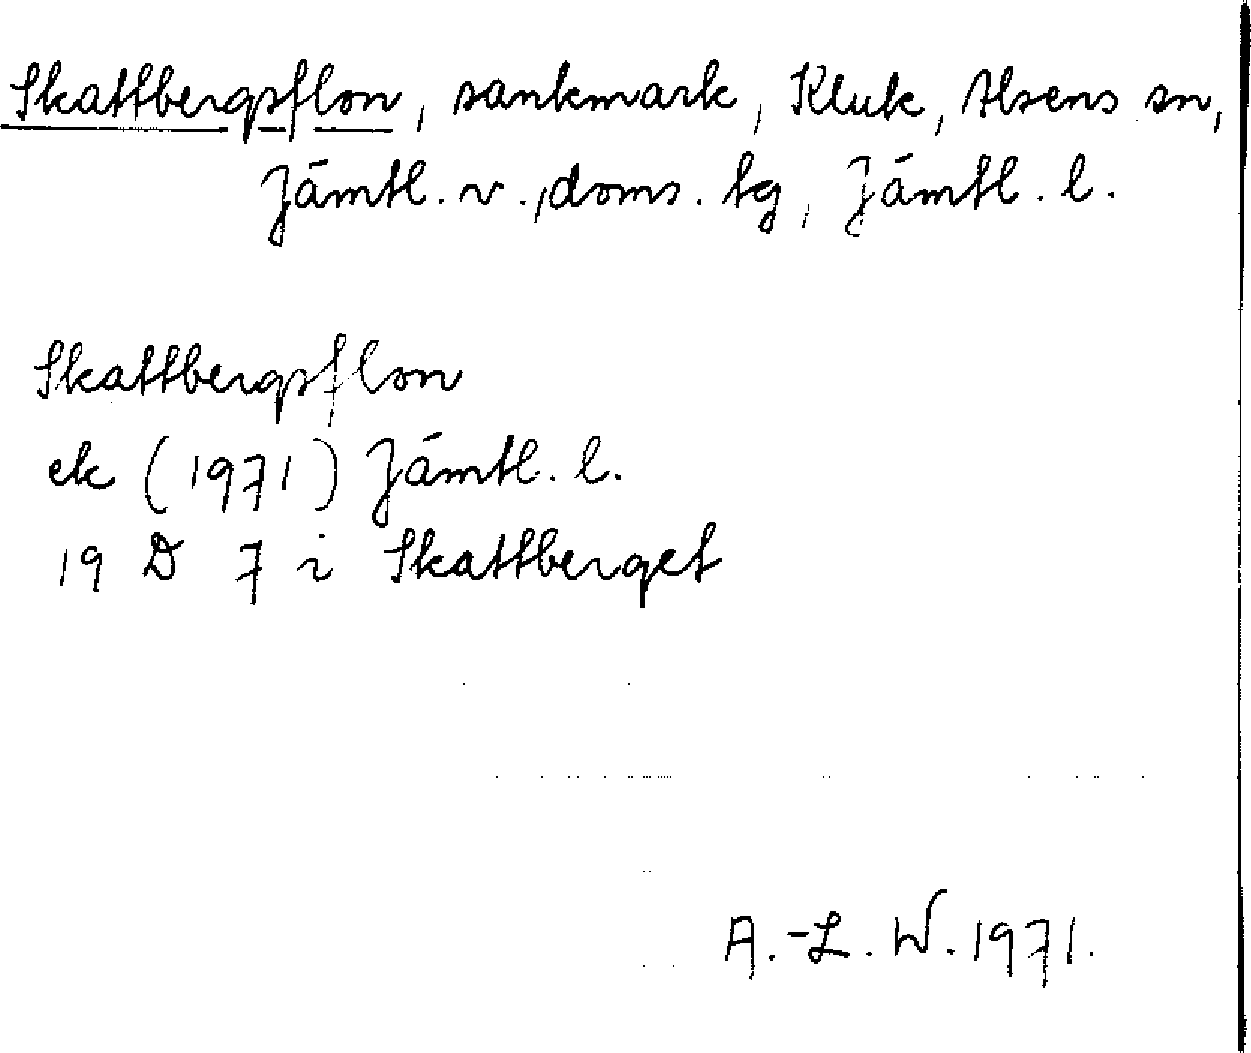 Skattbergsflon, sankmark, Kluk, Alsens sn,
Jämtl. v., doms. tg, Jämtl. l.
Skattbergsflon
ek (1971) Jämtl. l.
19 D 7 i Skattberget
A.-L. W. 1971.